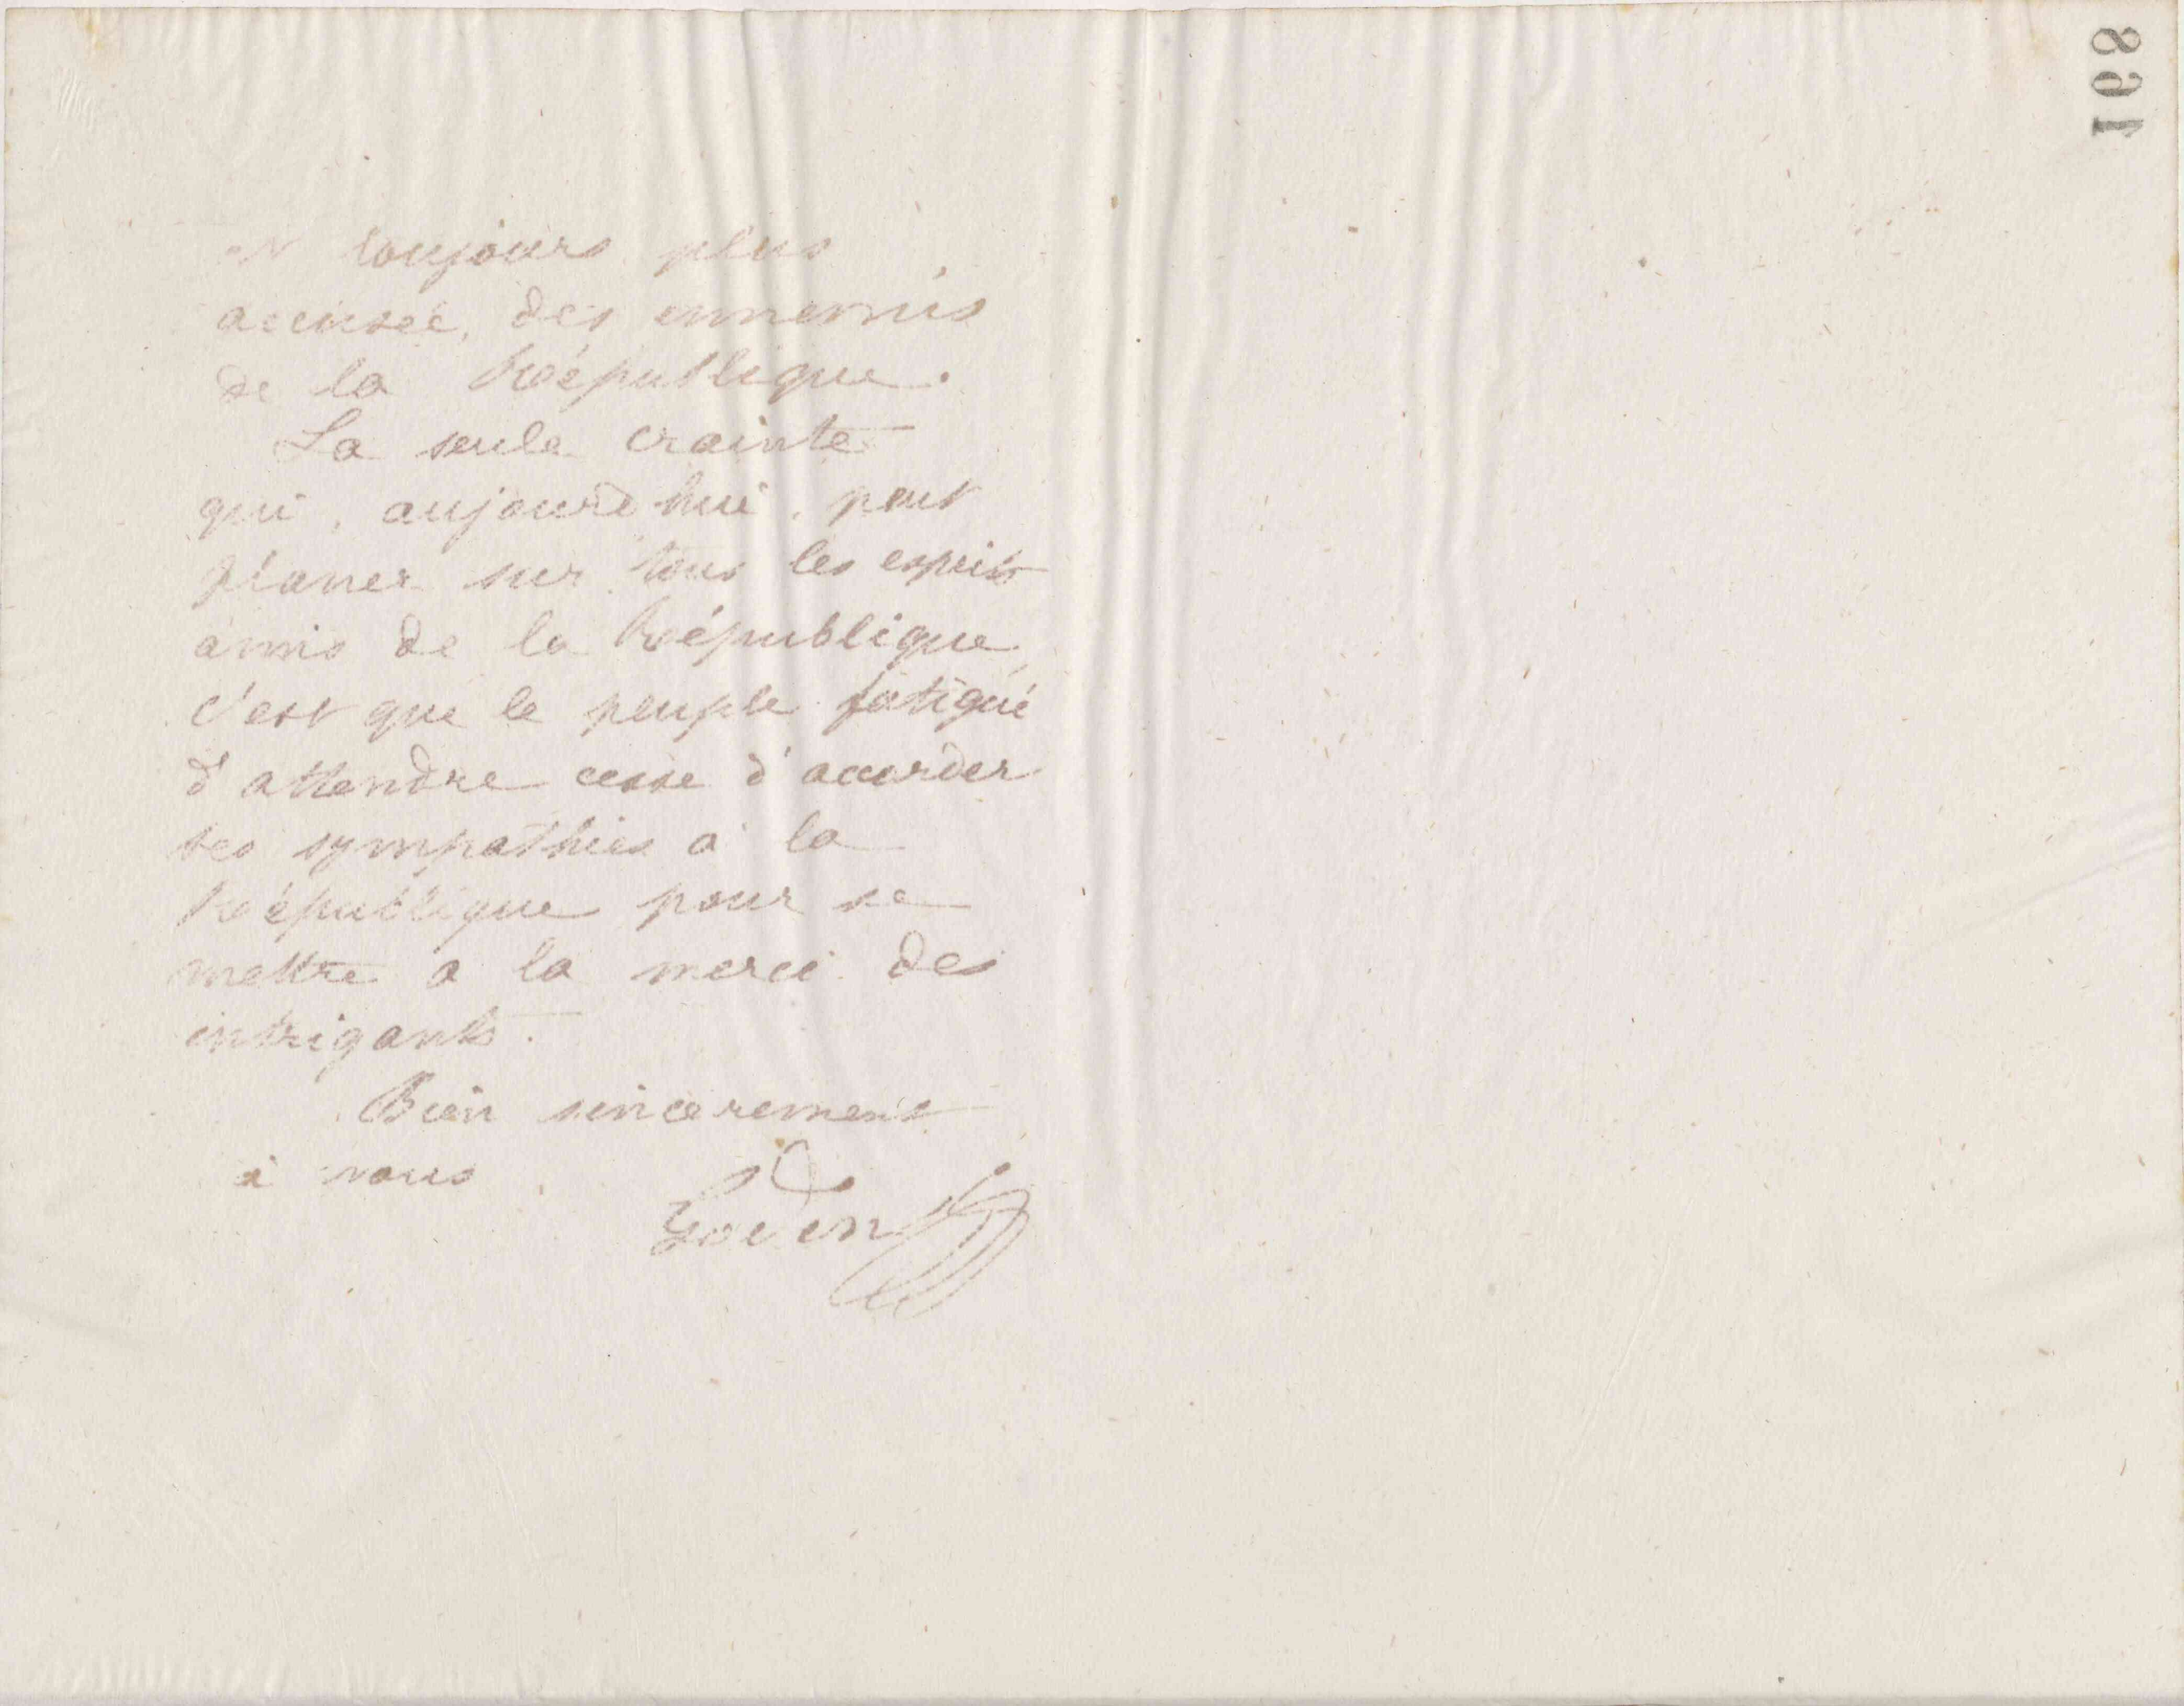 168
et toujours plus
accusée, des ennemis
de la République.
La seule crainte
qui, aujourd'hui, peut
planer sur tous les esprits
amis de la République,
c'est que le peuple fatigué
d'attendre cesse d'accorder
ses sympathies à la
République pour se
mettre a la merci des
intrigants.
Bien sincerement
à vous
Godin